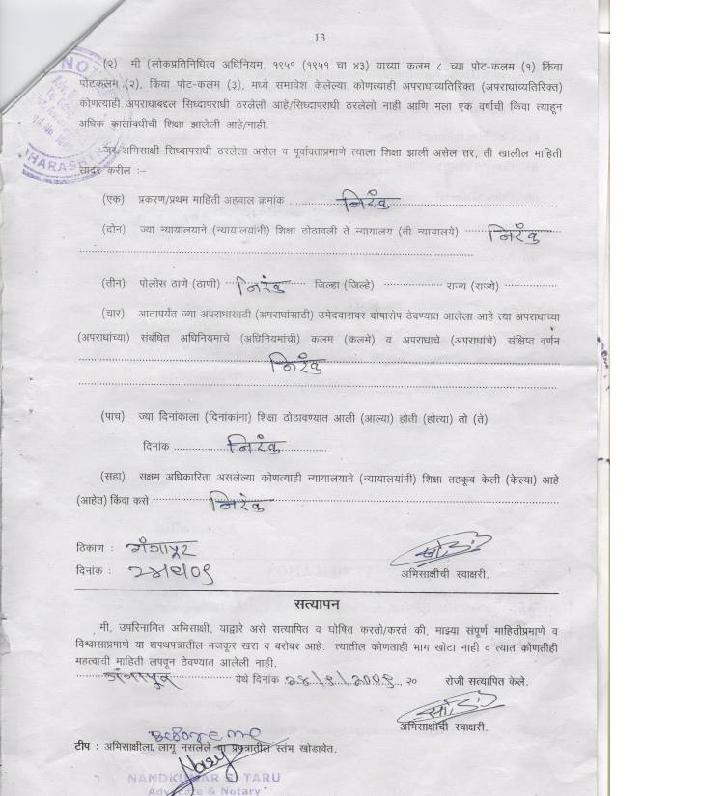 13
(२) मी (लोकप्रतिनिधित्व अधिनियम, १९५१ (१९५१ चा ४३) याच्या कलम ८ च्या पोट-कलम (१) किंवा
पोटकलम (२), किंवा पोट-कलम (३), मध्ये समावेश केलेल्या कोणत्याही अपराधाव्यतिरिक्त (अपराधाव्यतिरिक्त)
कोणत्याही अपराधाबद्दल सिध्दापराधी ठरलेलो आहे/सिध्दापराधी ठरलेलो नाही आणि मला एक वर्षाची किंवा त्याहून
अधिक कारावासाची शिक्षा झालेली आहे/नाही.
जर अभिसाक्षी सिध्दापराधी ठरलेला असेल व पूर्वोक्ताप्रमाणे त्याला शिक्षा झाली असेल तर, तो खालील माहिती
सादर करील :-
(एक) प्रकरण/प्रथम माहिती अहवाल क्रमांक निरंक
(दोन) ज्या न्यायालयाने (न्यायालयांनी) शिक्षा ठोठावली ते न्यायालय (ती न्यायालये) निरंक
(तीन) पोलीस ठाणे (ठाणी) निरंक जिल्हा (जिल्हे) राज्य (राज्ये)
(चार) आतापर्यंत ज्या अपराधासाठी (अपराधांसाठी) उमेदवारावर दोषारोप ठेवण्यात आलेला आहे त्या अपराधाच्या
(अपराधांच्या) संबंधित अधिनियमाचे (अधिनियमांची) कलम (कलमे) व अपराधाचे (अपराधांचे) संक्षिप्त वर्णन
निरंक
(पाच) ज्या दिनांकाला (दिनांकांना) शिक्षा ठोठावण्यात आली (आल्या) होती (होत्या) तो (ते)
दिनांक निरंक
(सहा) सक्षम अधिकारिता असलेल्या कोणत्याही न्यायालयाने (न्यायालयांनी) शिक्षा तहकूब केली (केल्या) आहे
(आहेत) किंवा कसे निरंक
ठिकाण : गंगापूर
दिनांक :
अभिसाक्षीची स्वाक्षरी.
सत्यापन
मी, उपरिनामित अभिसाक्षी, याद्वारे असे सत्यापित व घोषित करतो/करते की, माझ्या संपूर्ण माहितीप्रमाणे व
विश्वासाप्रमाणे या शपथपत्रातील मजकूर खरा व बरोबर आहे. त्यातील कोणताही भाग खोटा नाही व त्यात कोणतीही
महत्वाची माहिती लपवून ठेवण्यात आलेली नाही.
गंगापूर येथे दिनांक २४/९/२००९ २० रोजी सत्यापित केले.
अभिसाक्षीची स्वाक्षरी.
BEFORE ME
टीप : अभिसाक्षीला, लागू नसलेले या प्रपत्रातील स्तंभ खोडावेत.
NANDKUMAR S. TARU
Advocate & Notary